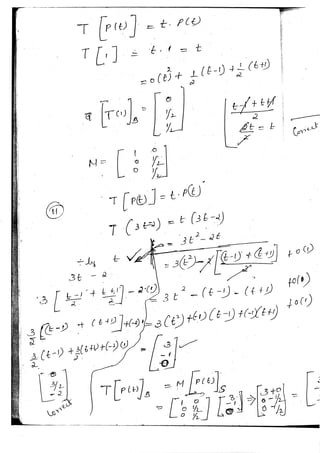 T [P(t)] = t. P(t)
T [1] = t. 1 = t
= 0(t²) + 1/2 (t-1) + 1/2 (t+1)
[T(1)]_B = [0 1/2 1/2]
t-1 + t+1 / 2
2t = t
Correct
M = [1 0
0 1/2
0 1/2]
T [P(t)] = t. P(t)
11
T (3t-2) = t (3t-2)
= 3t² - 2t
÷ by t
= 3(t²) - 2 [(t-1) + (t+1)] + 0(1)
3t - 2
3 [t-1 + t+1 / 2] - 2(1)
= 3t² - (t-1) - (t+1) + 0(1)
3/2 [(t-1) + (t+1)] + (-2)
= 3(t²) + (-1)(t-1) + (-1)(t+1) + 0(1)
3/2 (t-1) + 3/2 (t+1) + (-2)(1)
= [3 -1 0]
[0 3/2 -2]
Correct
T [P(t)]_B = M [P(t)]_S
= [1 0
0 1/2
0 1/2] [3 -1 0] ⇒ [3+0
0-1/2
0-1/2] = [3